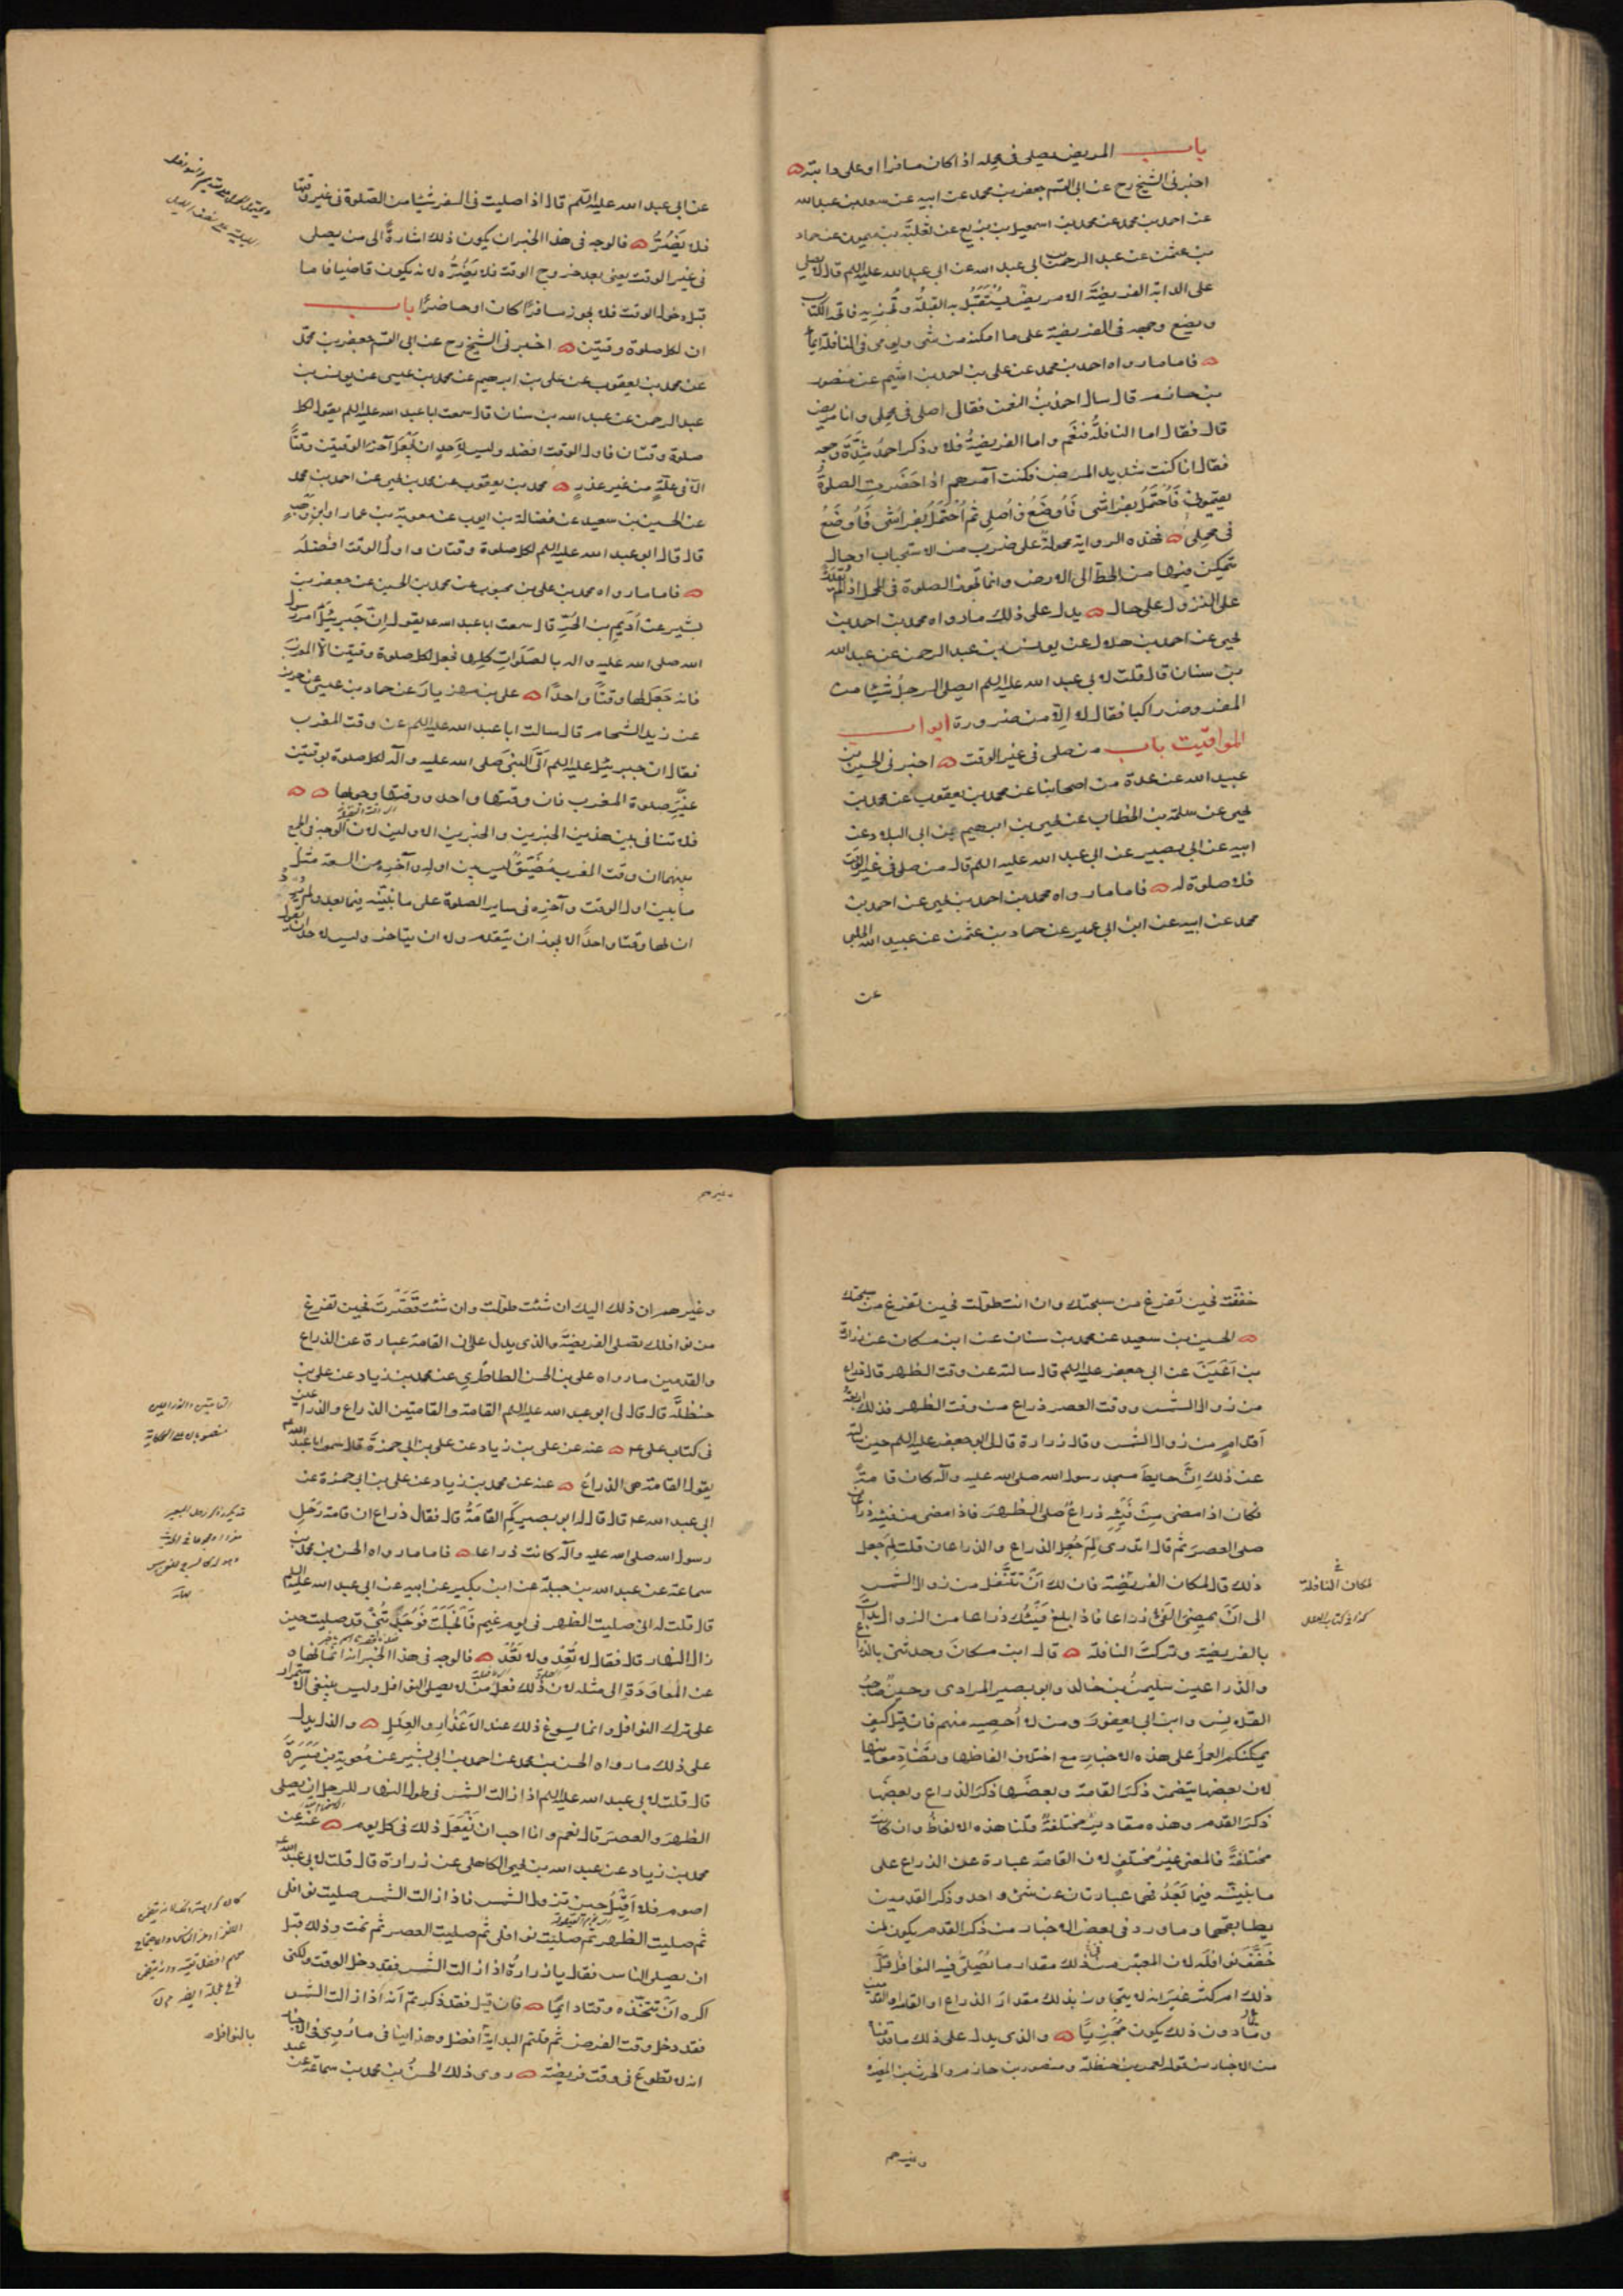 باب المريض يصلى فى محمله اذا كان مسافرا او على دابته
اخبرنى الشيخ رح عن ابى القسم جعفر بن محمد عن ابيه عن سعد بن عبد الله
عن احمد بن محمد عن محمد بن اسمعيل بن بزيع عن ثعلبة بن ميمون عن حماد
بن عثمن عن عبد الرحمن بن ابى عبد الله عن ابى عبد الله عليه السلم قال لا يصلى
على الدابة الفريضة الا مريض يستقبل به القبلة وتجزيه فاتحة الكتاب
ويضع وجهه فى الفريضة على ما امكنه من شى ويومى فى النافلة ايماء
فاما ما رواه احمد بن محمد عن على بن احمد بن اشيم عن منصور
بن حازم قال سال احمد بن النعمن فقال اصلى فى محملى وانا مريض
قال فقال اما النافلة فنعم واما الفريضة فلا وذكر احمد شدة وجعه
فقال انا كنت شديد المرض فكنت آمرهم اذا حضرت الصلوة
فاحتمل بفراشى فاوضع واصلى ثم احتمل بفراشى فاوضع
فى محملى فهذه الرواية محمولة على ضرب من الاستحباب او حال
يتمكن فيها من الحط الى الارض وانما تجوز الصلوة فى المحمل اذا لم يقدر
على النزول على حال يدل على ذلك ما رواه محمد بن احمد بن
يحيى عن احمد بن هلال عن يونس بن عبد الرحمن عن عبد الله
بن سنان قال قلت لابى عبد الله عليه السلم ايصلى الرجل شيئا من
المفروض راكبا فقال لا الا من ضرورة ابواب
المواقيت باب من صلى فى غير الوقت اخبرنى الحسين بن
عبيد الله عن عدة من اصحابنا عن محمد بن يعقوب عن محمد بن
يحيى عن سلمة بن الخطاب عن يحيى بن ابرهيم بن ابى البلاد عن
ابيه عن ابى بصير عن ابى عبد الله عليه السلم قال من صلى فى غير الوقت
فلا صلوة له فاما ما رواه محمد بن احمد بن يحيى عن احمد بن
محمد عن ابيه عن ابن ابى عمير عن حماد بن عثمن عن عبيد الله الحلبى
عن
عن ابى عبد الله عليه السلم قال اذا صليت فى السفر شيئا من الصلوة فى غير وقتها
فلا يضرّ فالوجه فى هذا الخبر ان يكون ذلك اشارة الى من يصلى
فى غير الوقت يعنى بعد خروج الوقت فلا يضرّه لانه يكون قاضيا فاما
قبل دخول الوقت فلا يجوز مسافرا كان او حاضرا باب
ان لكل صلوة وقتين اخبرنى الشيخ رح عن ابى القسم جعفر بن محمد
عن محمد بن يعقوب عن على بن ابرهيم عن محمد بن عيسى عن يونس بن
عبد الرحمن عن عبد الله بن سنان قال سمعت ابا عبد الله عليه السلم يقول لكل
صلوة وقتان فاول الوقت افضله وليس لاحد ان يجعل آخر الوقتين وقتا
الا فى علة من غير عذر محمد بن يعقوب عن محمد بن يحيى عن احمد بن محمد
عن الحسين بن سعيد عن فضالة بن ايوب عن معوية بن عمار او ابن وهب
قال قال ابو عبد الله عليه السلم لكل صلوة وقتان واول الوقت افضله
فاما ما رواه محمد بن على بن محبوب عن محمد بن الحسين عن جعفر بن
بشير عن اديم بن الحر قال سمعت ابا عبد الله ع يقول ان جبرئيل امر رسول
الله صلى الله عليه واله بالصلوات كلها فجعل لكل صلوة وقتين الا المغرب
فانه جعل لها وقتا واحدا على بن مهزيار عن حماد بن عيسى عن حريز
عن زيد الشحام قال سالت ابا عبد الله عليه السلم عن وقت المغرب
فقال ان جبرئيل عليه السلم اتى النبى صلى الله عليه وآله لكل صلوة بوقتين
غير صلوة المغرب فان وقتها واحد ووقتها وجوبها
فلا تنافى بين هذين الخبرين والخبرين الاولين لان الوجه فى الجمع
بينهما ان وقت المغرب مضيق ليس بين اوله وآخره من السعة مثل
ما بين اول الوقت وآخره فى ساير الصلوة على ما نبينه فيما بعد ولم يرد
ان لها وقتا واحدا لا يجوز ان يتقدمه ولا ان يتاخر وليس لاحد ان يقول
خففت فحين تفرغ من سبحتك وان انت طولت فحين تفرغ من سبحتك
الحسين بن سعيد عن محمد بن سنان عن ابن مسكان عن زرارة
بن اعين عن ابى جعفر عليه السلم قال سالته عن وقت الظهر قال ذراع
من زوال الشمس ووقت العصر ذراع من وقت الظهر فذلك اربعة
اقدام من زوال الشمس وقال زرارة قال لى ابو جعفر عليه السلم حين سالته
عن ذلك ان حايط مسجد رسول الله صلى الله عليه وآله كان قامة
فكان اذا مضى من فيئه ذراع صلى الظهر فاذا مضى من فيئه ذراعان
صلى العصر ثم قال اتدرى لم جعل الذراع والذراعان قلت لم جعل
ذلك قال لمكان الفريضة فان لك ان تتنفل من زوال الشمس
الى ان يمضى الفى ذراعا فاذا بلغ فيئك ذراعا من الزوال بدات
بالفريضة وتركت النافلة قال ابن مسكان وحدثنى بالذراع
والذراعين سليمن بن خالد وابو بصير المرادى وحسين صاحب
القلانس وابن ابى يعفور ومن لا احصيه منهم فان قيل كيف
يمكنكم العمل على هذه الاخبار مع اختلاف الفاظها وتضاد معانيها
لان بعضها يتضمن ذكر القامة وبعضها ذكر الذراع وبعضها
ذكر القدم وهذه مقادير مختلفة قلنا هذه الالفاظ وان كانت
مختلفة فالمعنى غير مختلف لان القامة عبارة عن الذراع على
ما نبينه فيما بعد فهما عبارتان عن شئ واحد وذكر القدمين
يطابقهما وما ورد فى بعض الاخبار من ذكر القدم يكون لمن
خفف نوافله لان المعتبر من ذلك مقدار ما تصلى فيه النوافل قل
ذلك ام كثر غير انه لا يتجاوز بذلك مقدار الذراع او القامة او القدمين
وما دون ذلك يكون مجزيا والذى يدل على ذلك ما قدمناه
من الاخبار من قوله لعمر بن حنظلة ومنصور بن حازم والحرث بن المغيرة
وغيرهم
لمكان النافلة
كذا فى كتاب العلل
وغيرهم ان ذلك اليك ان شئت طولت وان شئت قصرت فحين تفرغ
من نوافلك تصلى الفريضة والذى يدل على ان القامة عبارة عن الذراع
والقدمين ما رواه على بن الحسن الطاطرى عن محمد بن زياد عن على بن
حنظلة قال قال لى ابو عبد الله عليه السلم القامة والقامتين الذراع والذراعين
فى كتاب على ع عنه عن على بن زياد عن على بن ابى حمزة قال سمعت ابا عبد الله ع
يقول القامة هى الذراع عنه عن محمد بن زياد عن على بن ابى حمزة عن
ابى عبد الله ع قال قال له ابو بصير كم القامة قال فقال ذراع ان قامة رحل
رسول الله صلى الله عليه وآله كانت ذراعا فاما ما رواه الحسن بن محمد بن
سماعة عن عبد الله بن جبلة عن ابن بكير عن ابيه عن ابى عبد الله عليه السلم
قال قلت له انى صليت الظهر فى يوم غيم فانجلت فوجدتنى قد صليت حين
زال النهار قال فقال لا تعد ولا تعد فالوجه فى هذا الخبر انه انما نهاه
عن المعاودة الى مثله لان ذلك فعل من لا يصلى النوافل وليس ينبغى الاستمرار
على ترك النوافل وانما يسوغ ذلك عند الاعذار والعلل والذى يدل
على ذلك ما رواه الحسن بن محمد عن احمد بن ابى بشير عن معوية بن ميسرة
قال قلت لابى عبد الله عليه السلم اذا زالت الشمس فى طول النهار للرجل ان يصلى
الظهر والعصر قال نعم وانا احب ان يفعل ذلك فى كل يوم عنه عن
محمد بن زياد عن عبد الله بن يحيى الكاهلى عن زرارة قال قلت لابى عبد الله ع
اصوم فلا اقيل حين تزول الشمس فاذا زالت الشمس صليت نوافلى
ثم صليت الظهر ثم صليت نوافلى ثم صليت العصر ثم نمت وذلك قبل
ان يصلى الناس فقال يا زرارة اذا زالت الشمس فقد دخل الوقت ولكنى
اكره ان تتخذه وقتا دائما فان قيل فقد ذكرتم انه اذا زالت الشمس
فقد دخل وقت الفرض ثم قلتم البداية بالنوافل افضل وهذا ينافى ما روى فى الاخبار
انه لا تطوع فى وقت فريضة روى ذلك الحسن بن محمد بن سماعة عن